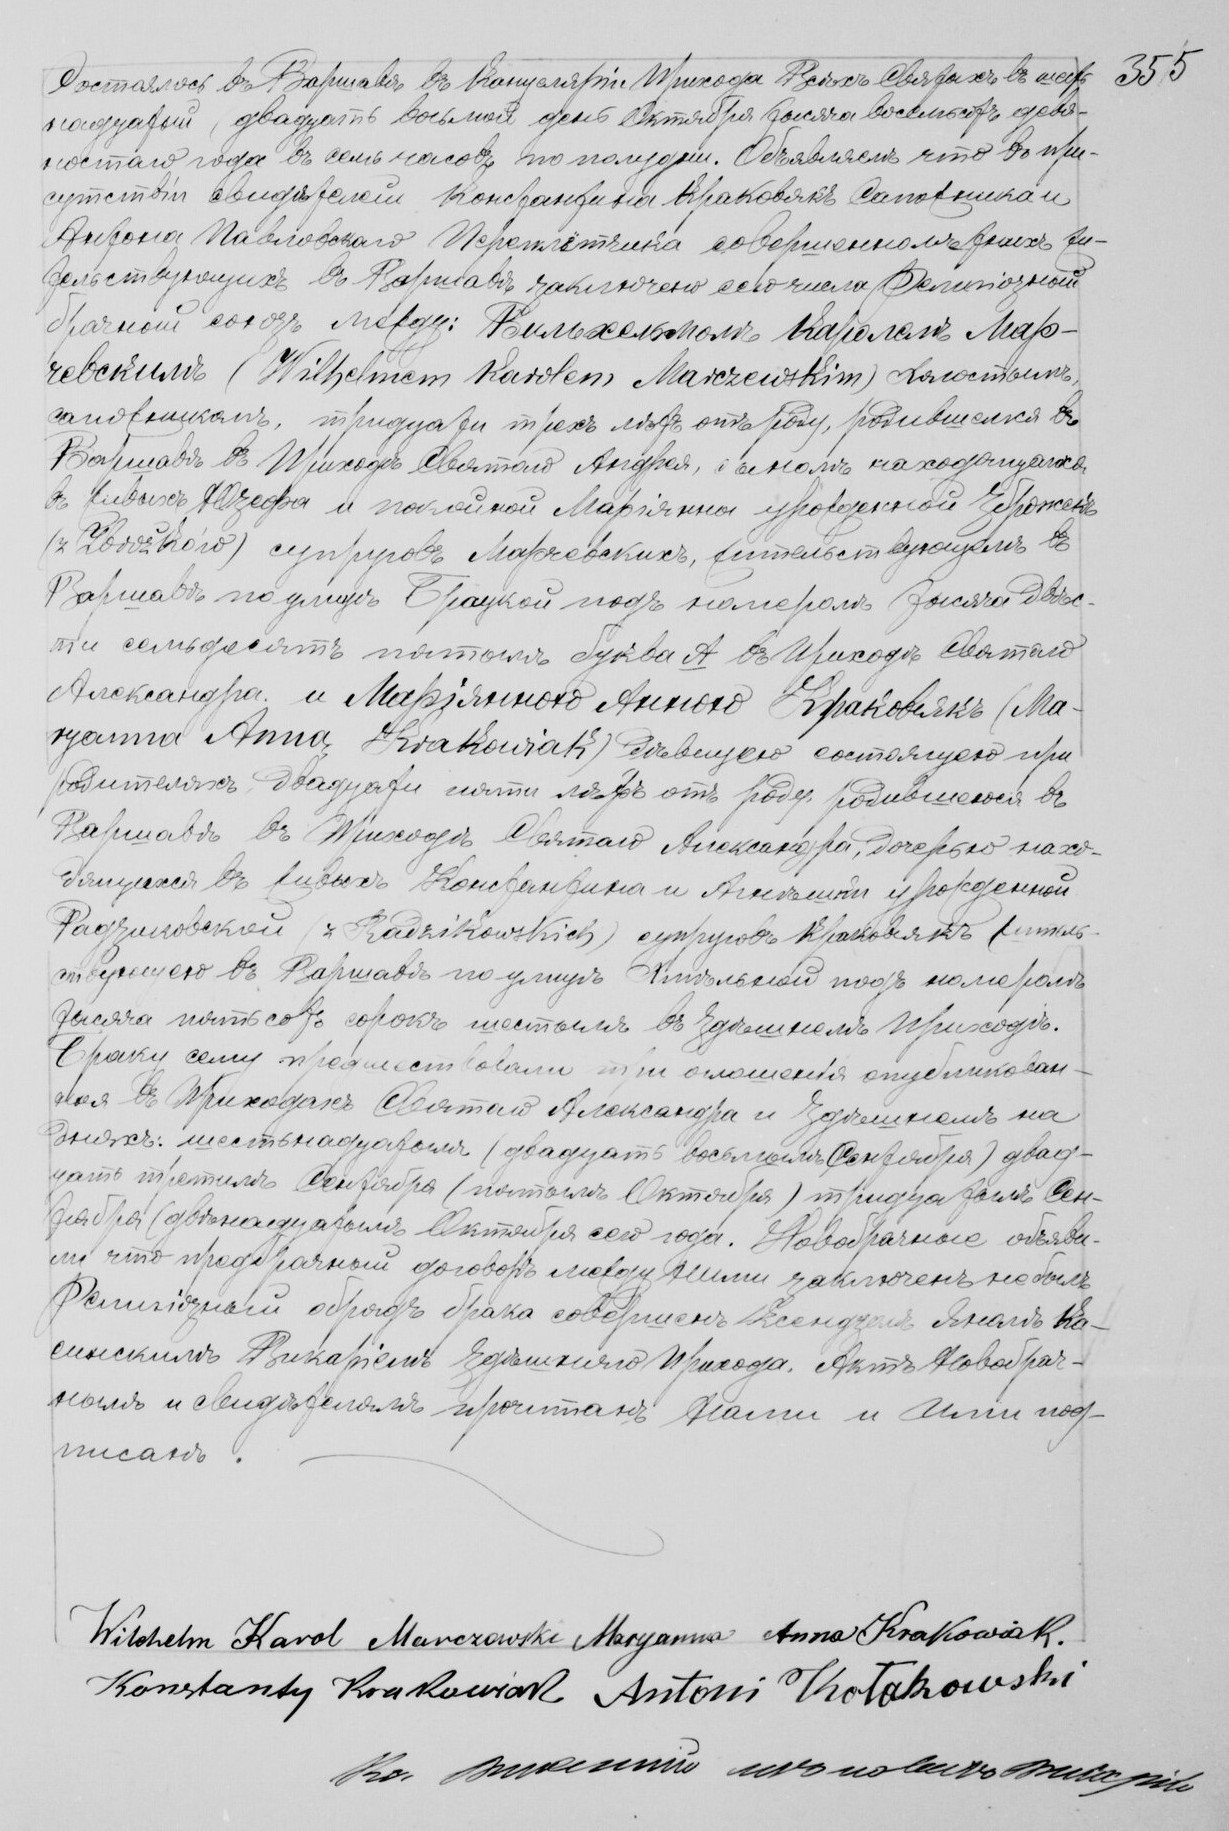 355
Состоялось въ Варшавѣ въ Канцеляріи Прихода Всѣхъ Святыхъ въ шест-
надцатый, двадцать восьмой день Октября тысяча восемьсотъ девя-
ностаго года въ семь часовъ по полудни. Объявляемъ что въ при-
сутствіи свидѣтелей Константина Краковякъ Сапожника и
Антона Переплётчика совершеннолѣтнихъ жи-
тельствующихъ въ Варшавѣ заключено сего числа Религіозный
брачный союзъ между: Вильхельмомъ Каролемъ Мар-
чевскимъ (Wilhelmem Karolem Marczewskim) холостымъ,
сапожникомъ, тридцати трехъ лѣтъ отъ роду, родившемся въ
Варшавѣ въ Приходѣ Святаго Андрея, сыномъ находящагося
въ живыхъ Юзефа и покойной Маріянны урожденной
(z) супруговъ Марчевскихъ, жительствующемъ въ
Варшавѣ по улицѣ Брацкой подъ номеромъ тысяча двѣс-
ти семьдесятъ пятымъ буква А въ Приходѣ Святаго
Александра. и Маріянною Анною Краковякъ (Ма-
ryanna Anna Krakowiak) дѣвицею состоящею при
родителяхъ двадцати пяти лѣтъ отъ роду, родившеюся въ
Варшавѣ въ Приходѣ Святаго Александра, дочерью нахо-
дящихся въ живыхъ Константина и Агнѣшки урожденной
Радзиковской (z Radzikowskich) супруговъ Краковякъ житель-
ствующею въ Варшавѣ по улицѣ Хмѣльной подъ номеромъ
тысяча пятьсотъ сорокъ шестымъ въ здѣшнемъ Приходѣ.
Браку сему предшествовали три оглашенія опубликован-
ныя въ Приходахъ Святаго Александра и здѣшнемъ на
дняхъ: шестьнадцатымъ (двадцать восьмымъ Сентября) двад-
цать третьимъ Сентября (пятымъ Октября) тридцатымъ Сен-
тября (двѣнадцатымъ Октября сего года. Новобрачные объяви-
ли что предбрачный договоръ между ними заключенъ небылъ
Религіозный обрядъ брака совершенъ Ксендземъ Яномъ Ка-
синскимъ Викаріемъ здѣшняго Прихода. Актъ Новобрач-
нымъ и свидѣтелямъ прочитанъ Нами и Ими под-
писанъ.
Wilchelm Karol Marczewski Maryanna Anna Krakowiak.
Konstanty Krakowiak Antoni Kołakowski
Кс.